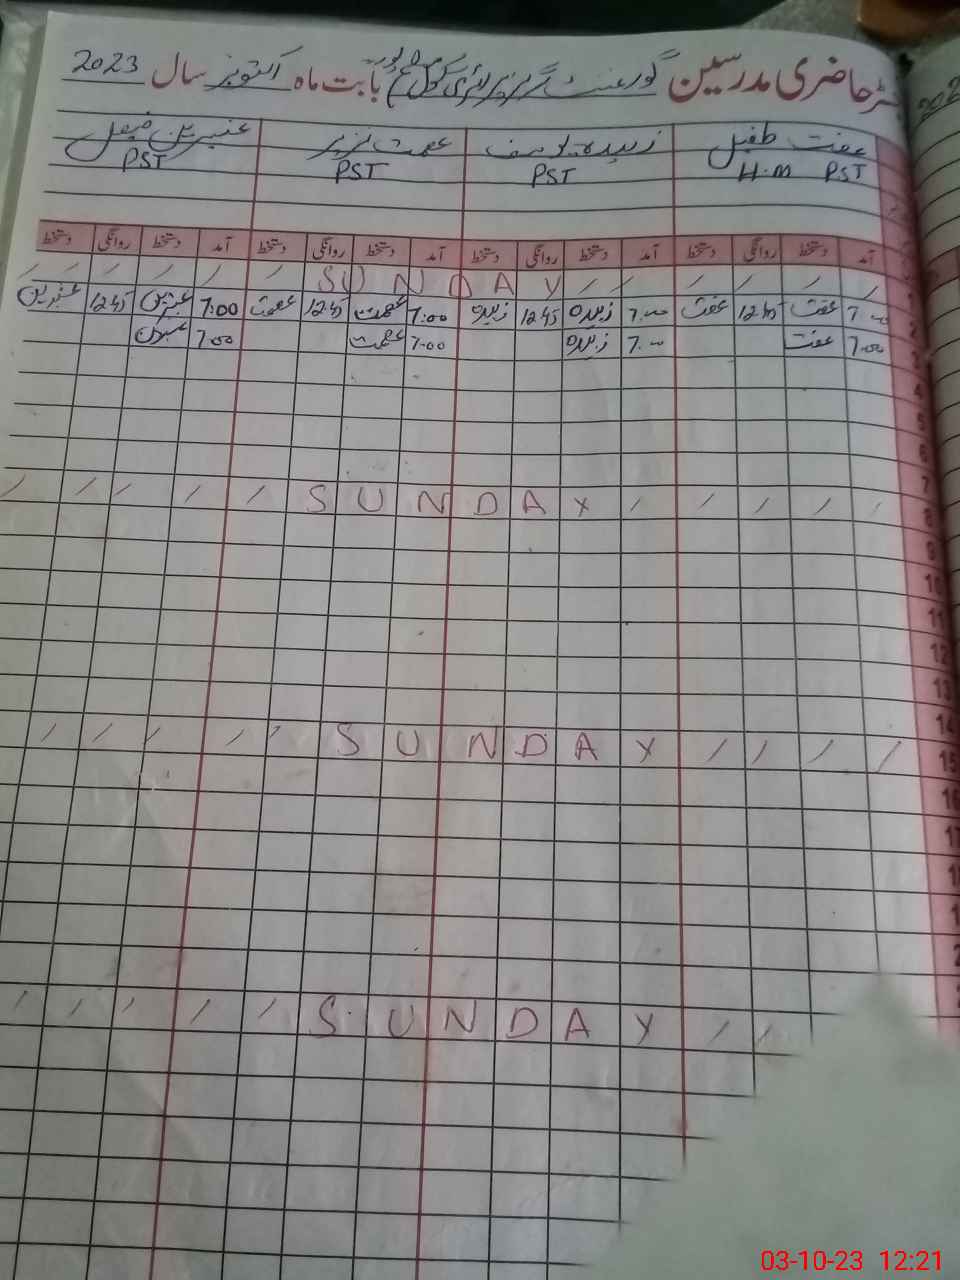 رجسٹر حاضری مدرسین گورنمنٹ گرلز پرائمری سکول بابت ماہ اکتوبر سال 2023
عفت طفیل زبیدہ یوسف عصمت نذیر عنبرین فیصل
H.M PST PST PST PST
آمد دستخط روانگی دستخط آمد دستخط روانگی دستخط آمد دستخط روانگی دستخط آمد دستخط روانگی دستخط
1 SUNDAY
2 7:00 عفت 12:45 عفت 7:00 زبیدہ 12:45 زبیدہ 7:00 عصمت 12:45 عصمت 7:00 عنبرین 12:45 عنبرین
3 7:00 عفت 7:00 زبیدہ 7:00 عصمت 7:00 عنبرین
4
5
6
7
8 SUNDAY
9
10
11
12
13
14
15 SUNDAY
16
17
SUNDAY
03-10-23 12:21